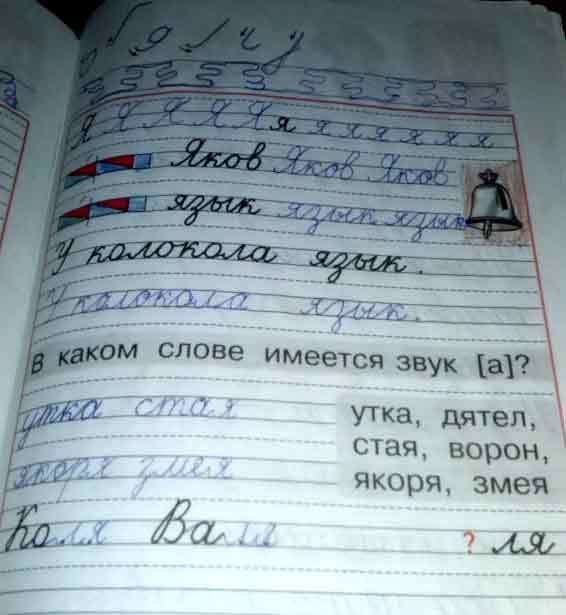 Я Я Я Я Я я я я я я я я
Яков Яков Яков
язык язык язык
У колокола язык.
У колокола язык.
В каком слове имеется звук [а]?
утка стая
утка, дятел,
стая, ворон,
якоря змея
якоря, змея
Коля Валя ? ля